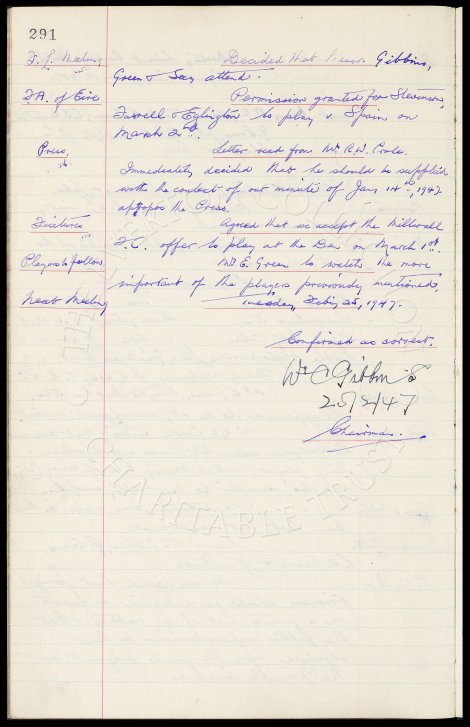 291
F. L. Meeting Decided that Messrs Gibbins,
Green & Say attend.
F.A. of Eire Permission granted for Stevenson,
Farrell & Eglington to play v. Spain on
March 2nd.
Press. Letter read from Mr. R.W.
Immediately decided that he should be supplied
with the context of our minute of Jany 14th, 1947
apropos the Press.
Fixtures Agreed that we accept the Millwall
F.C. offer to play at the Den on March 1st.
Players to follow Mr E. Green to watch the more
important of the players previously mentioned.
Next Meeting Tuesday, Feby 25, 1947.
Confirmed as correct.
Wm C Gibbins
25/2/47
Chairman.
CHARITABLE TRUST